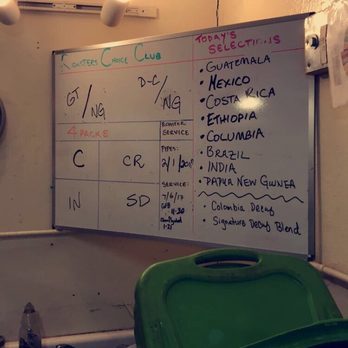 ROASTERS CHOICE CLUB
GT/NG
D-C/NG
4 PACKS
C
CR
IN
SD
ROASTER
SERVICE
PIPES:
SERVICE:
7/6/17
TODAY'S
• GUATEMALA
• MEXICO
• COSTA RICA
• ETHIOPIA
• COLUMBIA
• BRAZIL
• INDIA
• PAPUA NEW GUINEA
• Colombia Decaf
• Signature Decaf Blend